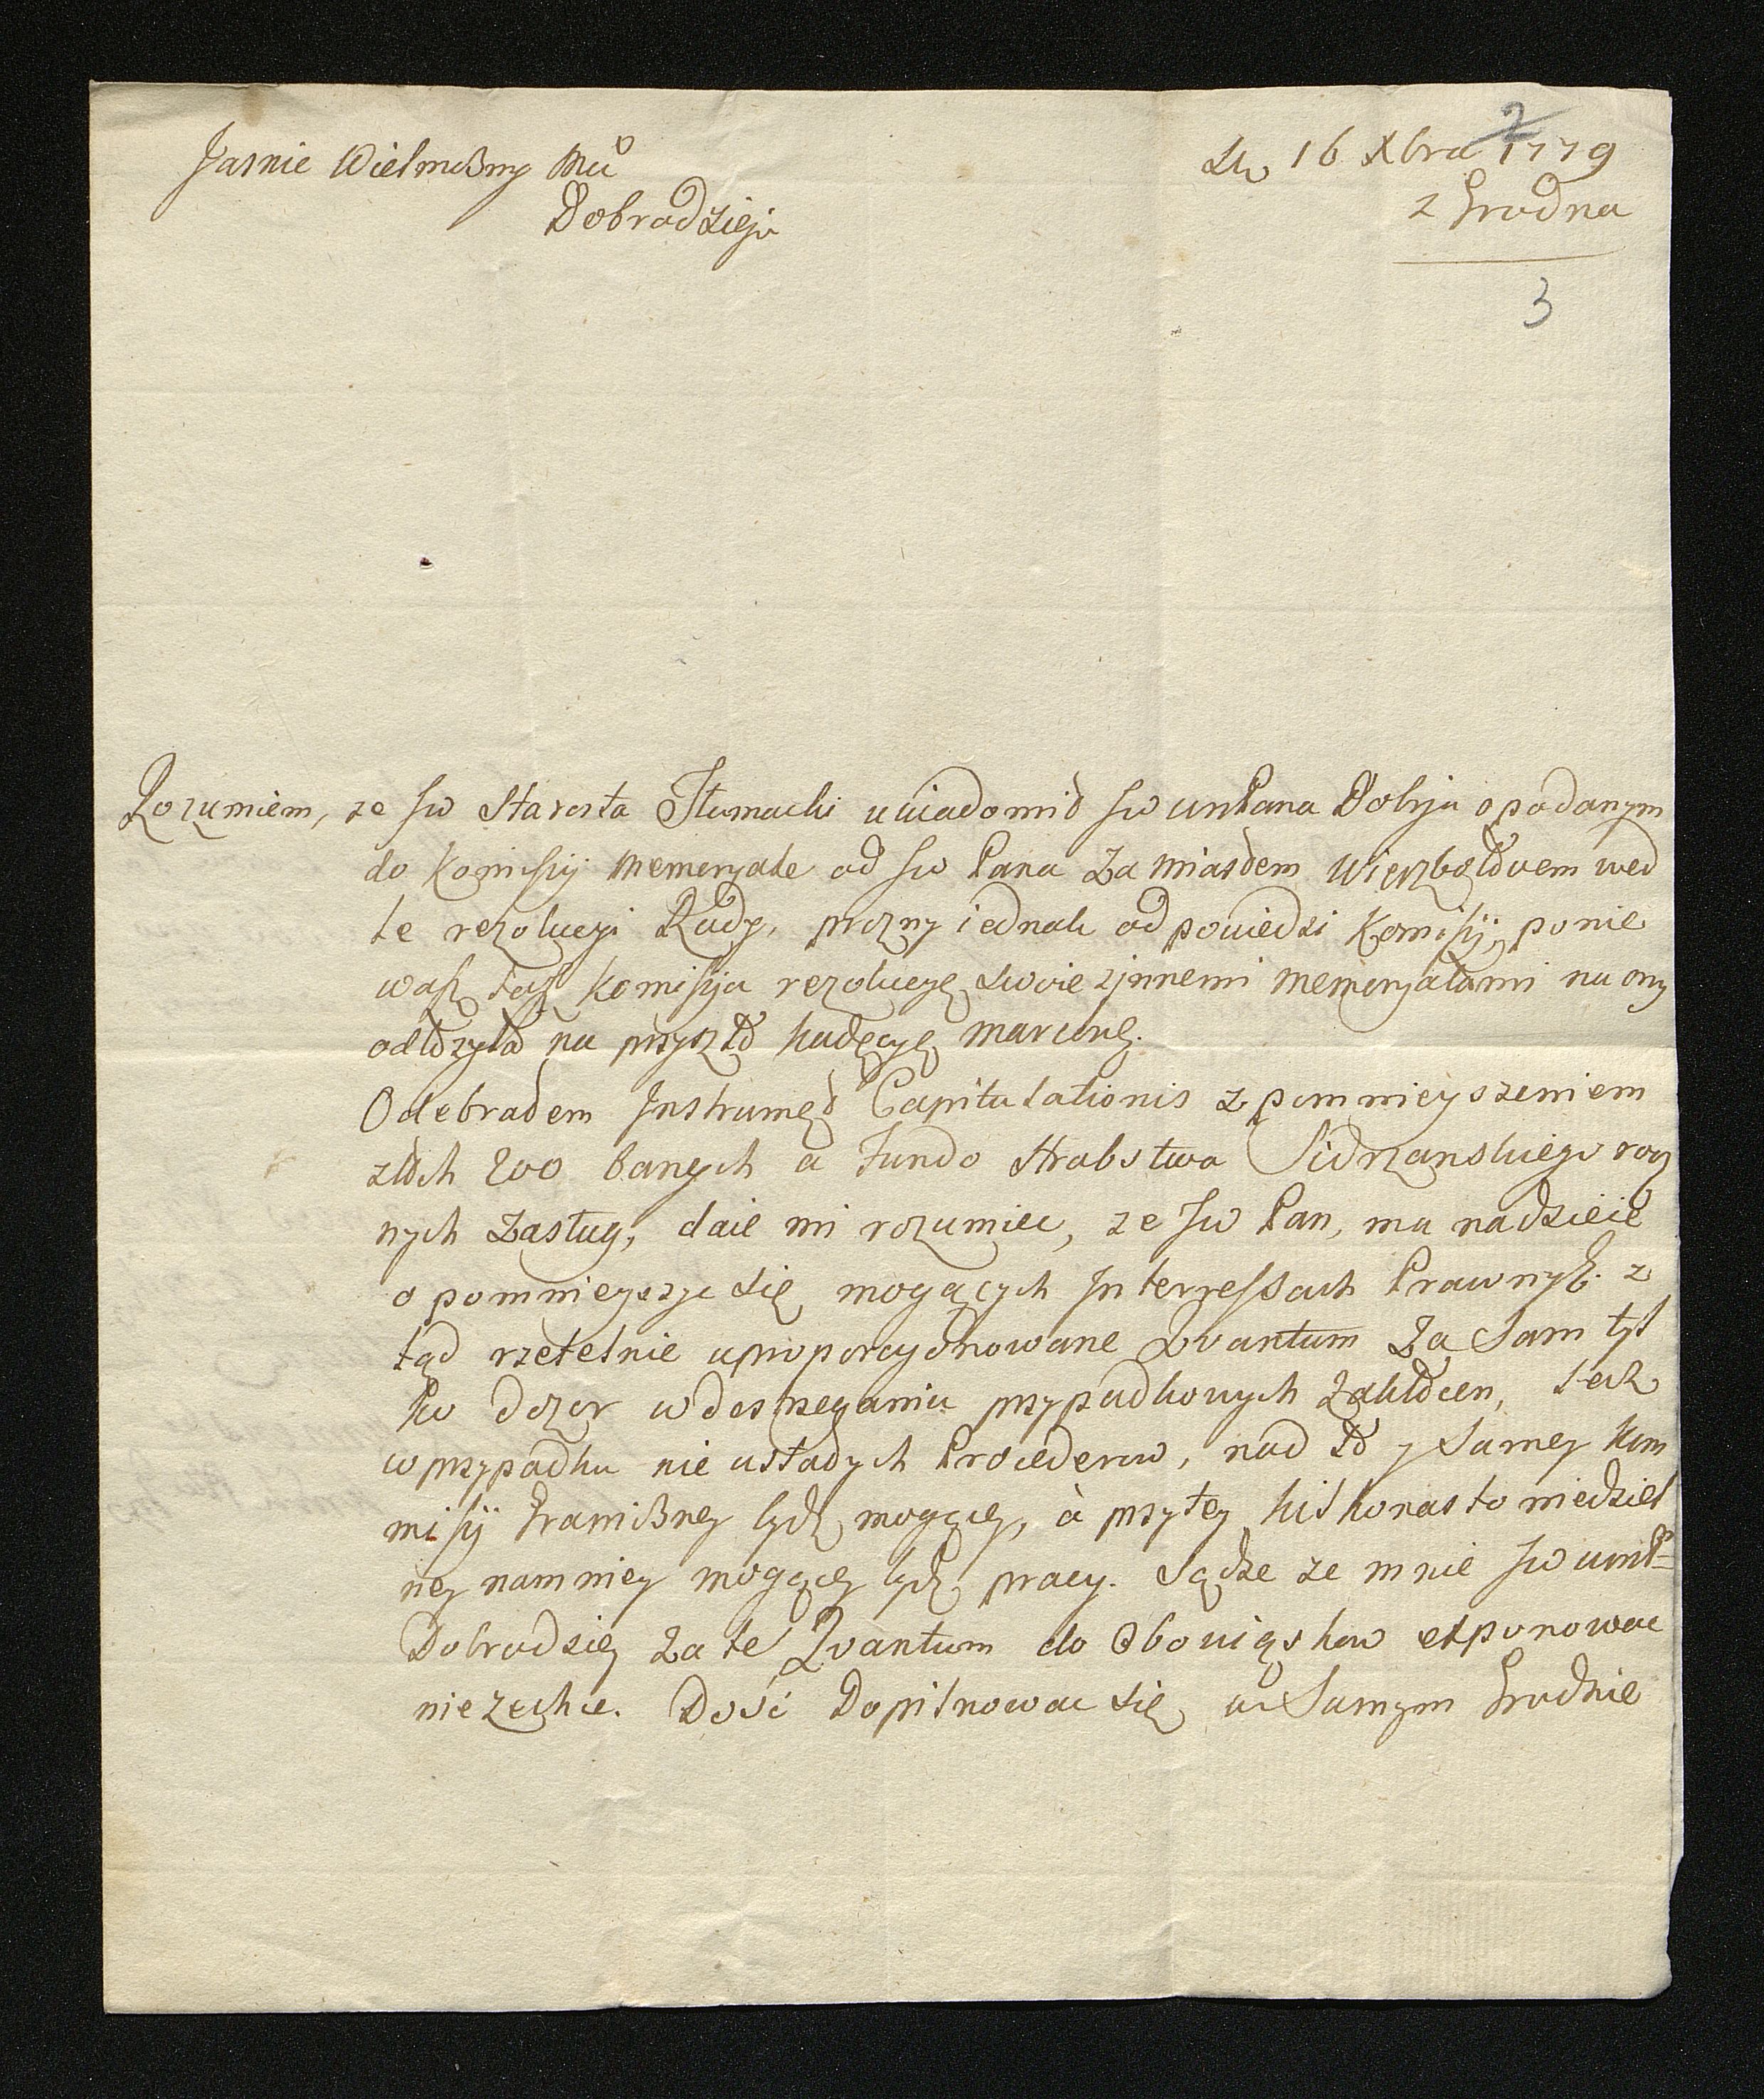 Jasnie Wielmożny Mci
Dobrodzieju
16 Xbra 1779
z Grodna
2
3
Rozumiem, ze Jw Starosta Tłumacki uwiadomił Jw Pana Dobrja o podanym
do Komissyi memoryale od Jw Pana za miastem Wierzbołowem wed
le rezolucyi Rady, prozny iednak odpowiedzi Komissyi, ponie
waz taz Komissya rezolucyę swoie z jnnemi memoryałami na ony
odłozyła na przyszłą kadęcyę marcową.
Odebrałem Jnstrumęt Capitulationis z pomnieyszeniem
złotch 200 branych a fundo Hrabstwa Sidrzanskiego rocz
nych zasług, daie mi rozumiec, ze Jw Pan, ma nadzieię
o pomnieyszyc się mogących Jnterressach Prawnych. z
tąd rzetelnie uproporcyonowane Qvantum za Sam tyl
ko dozor w dostrzeganiu przypadkowych zakłocen, lecz
w przypadku nie ustałych Procederow, nad to y Samey Kom
misyi Graniczney bydz mogącey, à przytey kilkonasto niedziel
ney namniey mogącey bydz pracy. Sądze ze mnie Jw
Dobrodziey za te Qvantum do Obowiąskow exponowac
niezechce. Dość Dopilnowac się w Samym Grodnie